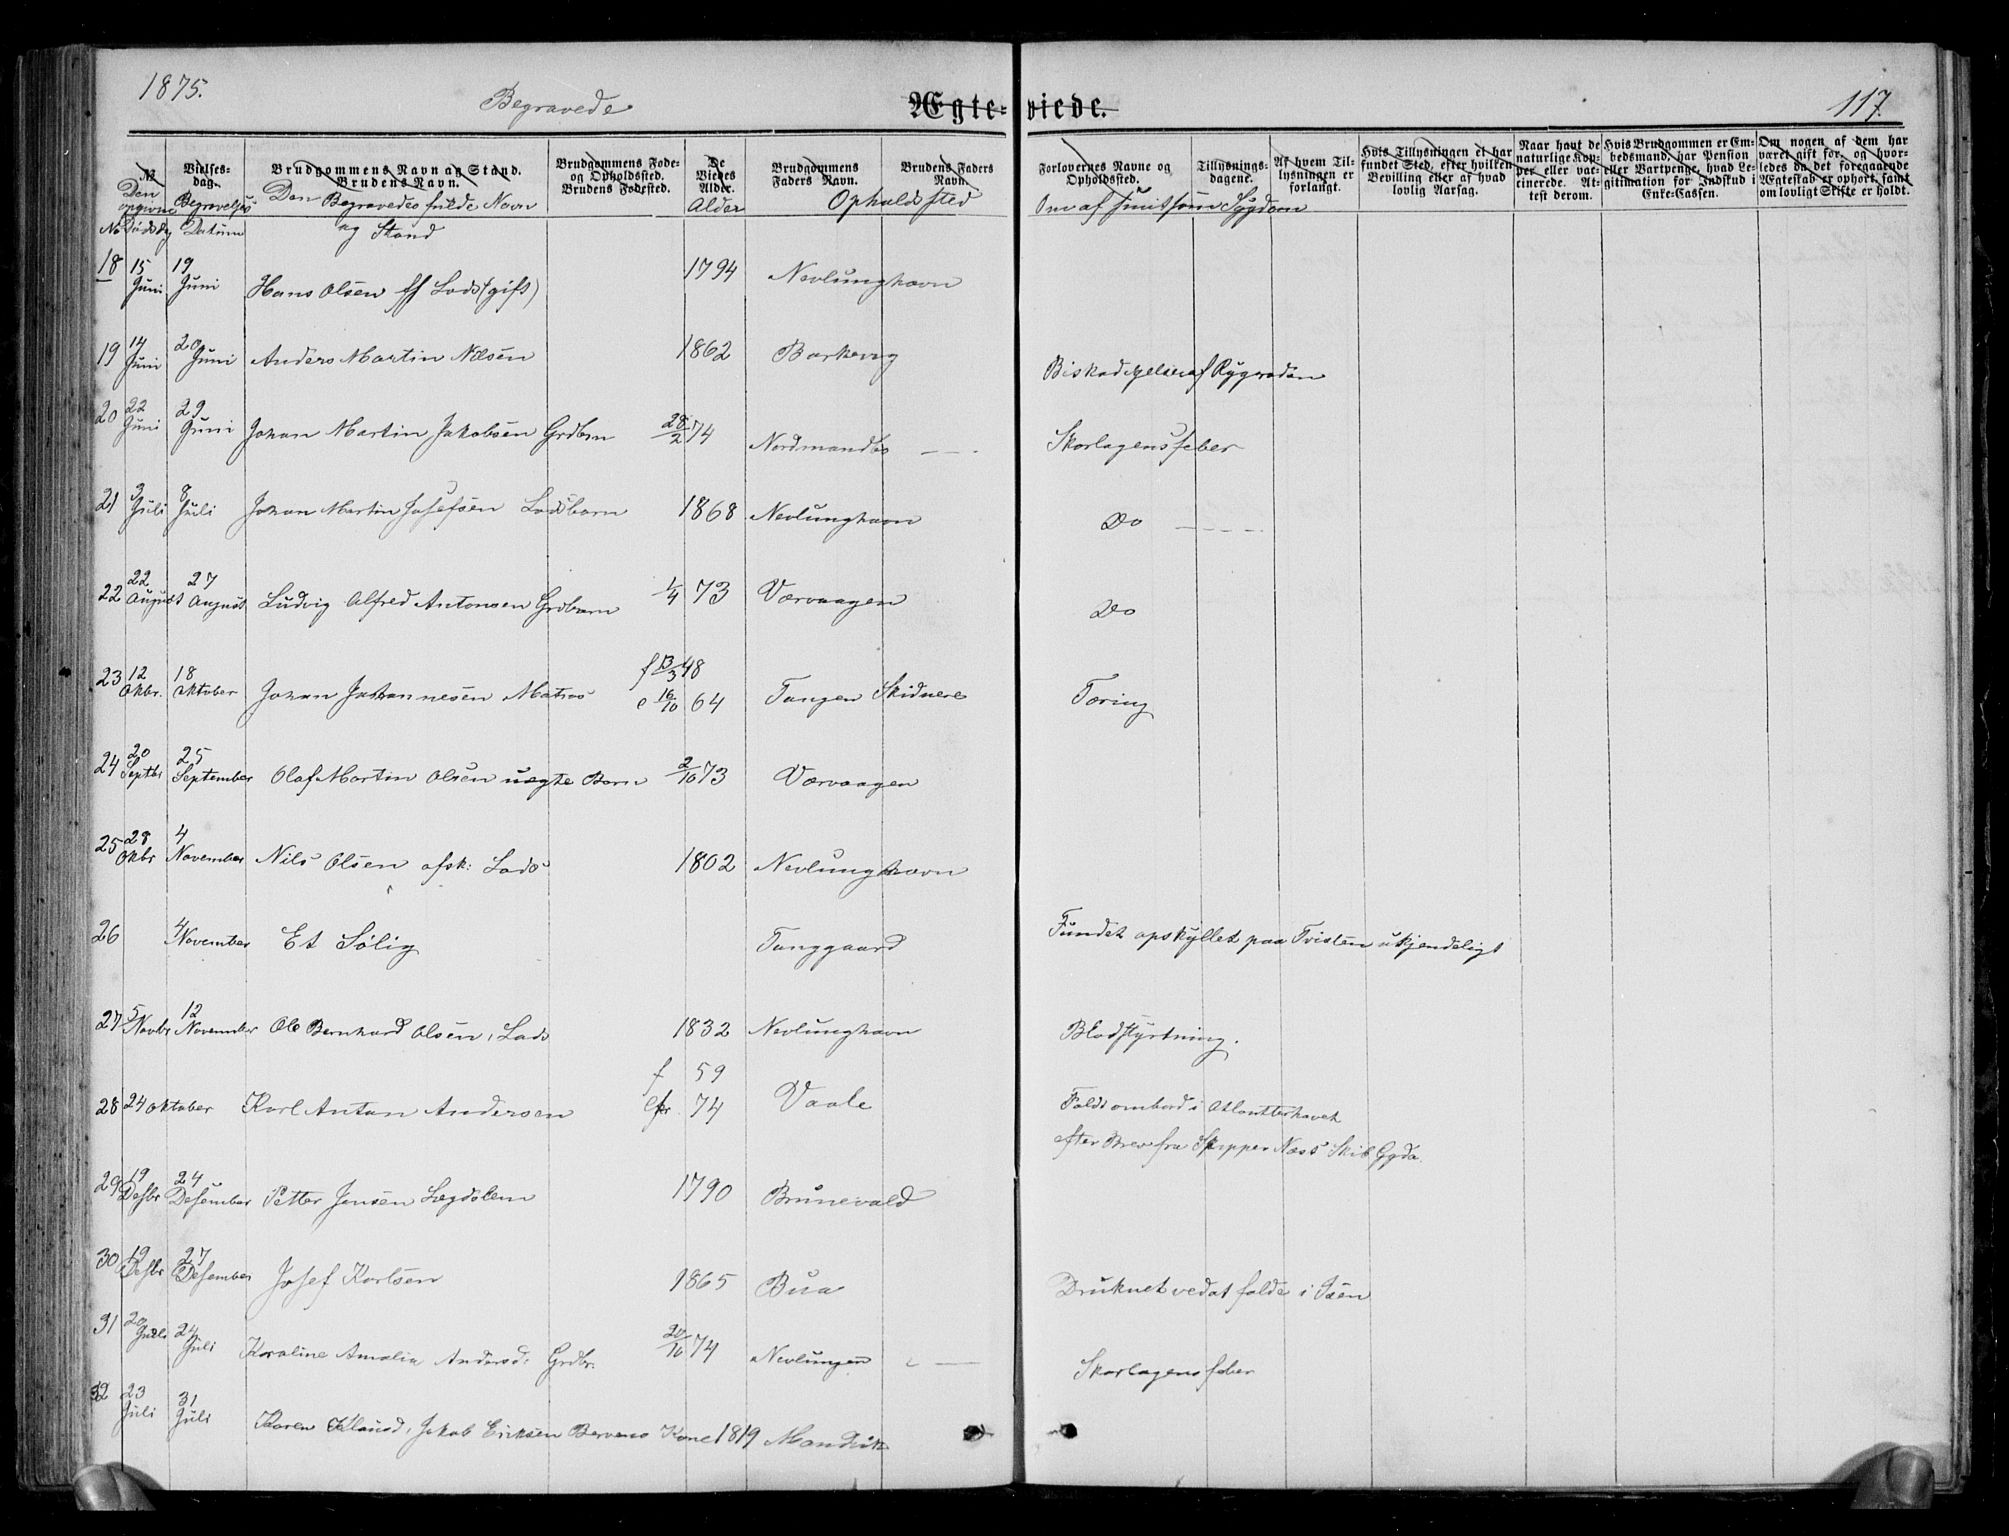 1875.
Begravede
Ægte-viede.
117.
No. Vielses-dag. Brudgommens Navn og Stand. Brudens Navn. Brudgommens Føde- og Opholdssted. Brudens Fødested. De Viedes Alder. Brudgommens Faders Navn. Brudens Faders Navn. Forlovernes Navne og Opholdssted. Tillysnings-dagene. Af hvem Til-lysningen er forlangt. Hvis Tillysningen ei har fundet Sted, efter hvilken Bevilling eller af hvad lovlig Aarsag. Naar havt de naturlige Kop-per eller vac-cinerede. At-test derom. Hvis Brudgommen er Em-bedsmand, har Pension eller Vartpenge, hvad Le-gitimation for Indskud i Enke-Cassen. Om nogen af dem har været gift før, og hvor-ledes da det foregaaende Ægteskab er ophørt, samt om lovligt Skifte er holdt.
No Den opgivne Dødsdag Begravelses Datum Den Begravedes fulde Navn og Stand Alder Opholdssted Om af smitsom Sygdom
18 15 Juni 19 Juni Hans Olsen ff Lods (gift) 1794 Nevlunghavn
19 14 Juni 20 Juni Anders Martin Nilsen 1862 Barkevig Beskadigelse af Rygraden
20 22 Juni 29 Juni Johan Martin Jakobsen Grdbrn 28/2 74 Nordmandbo Skarlagensfeber
21 3 Juli 8 Juli Johan Martin Josefsen Lodsbarn 1868 Nevlunghavn Do
22 22 August 27 August Ludvig Alfred Antonsen Grdbarn 1/4 73 Værvaagen Do
23 12 Okbr. 18 Oktober Johan Johannesen Matros f 13/3 48 c 16/10 64 Tangen Skidnere Tæring
24 20 Septbr 25 September Olaf Martin Olsen uægte Barn 2/10 73 Værvaagen
25 28 Okbr 4 November Nils Olsen afsk: Lods 1802 Nevlunghavn
26 4 November Et Sølig Tanggaard Fundet opskyllet paa Tvisten ukjendeligt
27 5 Novbr 12 November Ole Bernhard Olsen, Lods 1832 Nevlunghavn Blodstyrtning.
28 24 Oktober Karl Anton Andersen f 59 cfr. 74 Vaale Faldt ombord i Atlantterhavet
efter Brev fra Skipper Næss Skib Gyda.
29 19 Desbr 24 Desember Petter Jensen Lægdslem 1790 Brunevald
30 19 Desbr 27 Desember Josef Karlsen 1865 Bua Druknet ved at falde i Isen
31 20 Juli 24 Juli Karoline Amalia Andersd: Grdbr. 20/10 74 Nevlungen Skarlagensfeber
32 23 Juli 31 Juli Karen Klausd, Jakob Eriksen Kone 1819 Mandvik